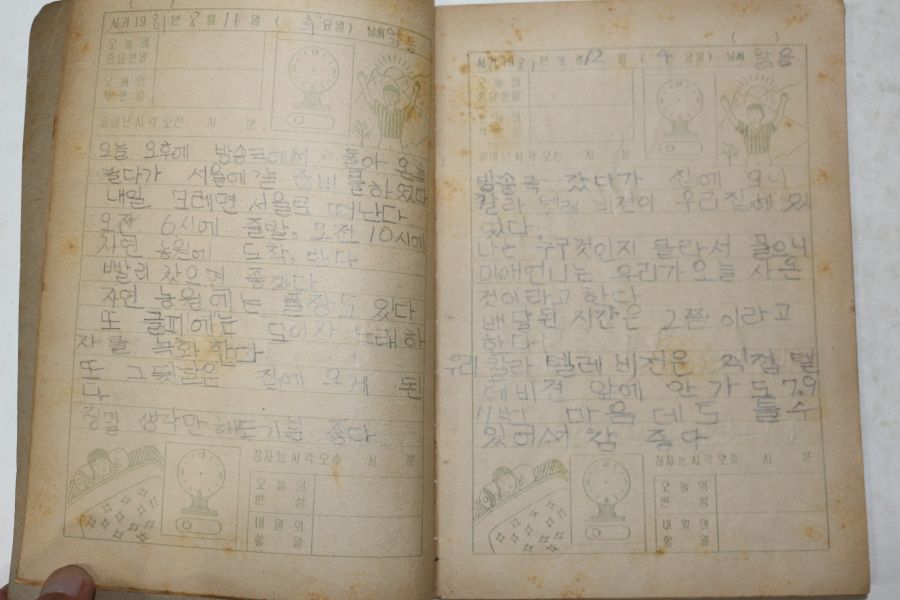 ( )
서기 1981년 8월 11일 ( 화요일) 날씨 맑음
오늘의
중요한일
오늘의
착한일
일어난시각 오전 시 분
오늘 오후에 방송국에서 돌아 온후
놀다가 서울에갈 준비를하였다
내일 모레면 서울로 떠난다
오전 6시에 출발, 오전 10시에
자연 농원에 도착, 한다
빨리 갔으면 좋겠다
자연 농원에는 풀장도 있다
또
자를 녹화 한다
또 그뒷날은 집에 오게 된
다
정말 생각만 해도기분 좋다
잠자는시각 오후 시 분
오늘의
반성
내일의
할일
( )
서기 1981년 8월 12일 ( 수요일) 날씨 맑음
오늘의
중요한일
오늘의
착한일
일어난시각 오전 시 분
방송국 갔다가 집에 오니
칼라 텔레비전이 우리집에 있
었다.
나는 누구것인지 몰라서 물으니
미애언니는 우리가 오늘 사온
것이라고 한다
배달된 시간은 2쯤 이라고
하다
우리 칼라 텔레비전은 직접 텔
레비전 앞에 안가도 7.9
11번 마음데로 틀수
있어서 참 좋다
잠자는시각 오후 시 분
오늘의
반성
내일의
할일